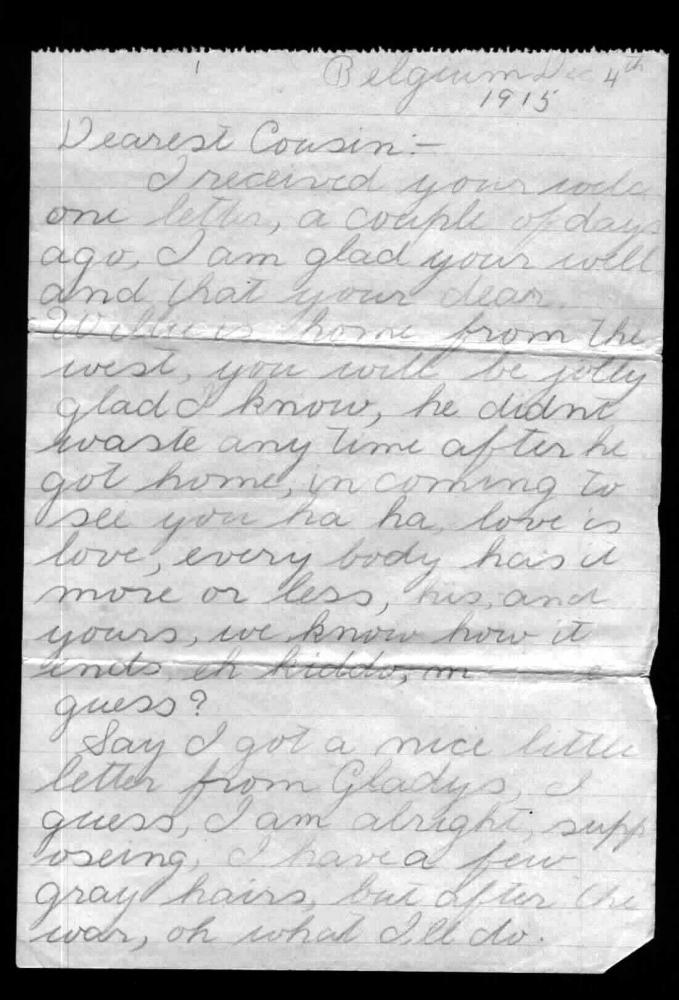 1
Belgium Dec 4th
1915
Dearest Cousin:-
I received your welc
ome letter, a couple of days
ago, I am glad your well
and that your dear
Willie is home from the
west, you will be jolly
glad I know, he didnt
waste any time after he
got home, in coming to
see you ha ha, love is
love, every body has it
more or less, his, and
yours, we know how it
ends eh kiddo,
guess?
Say I got a nice little
letter from Gladys, I
guess, I am alright, supp
oseing, I have a few
gray hairs, but after the
war, oh what I'll do.